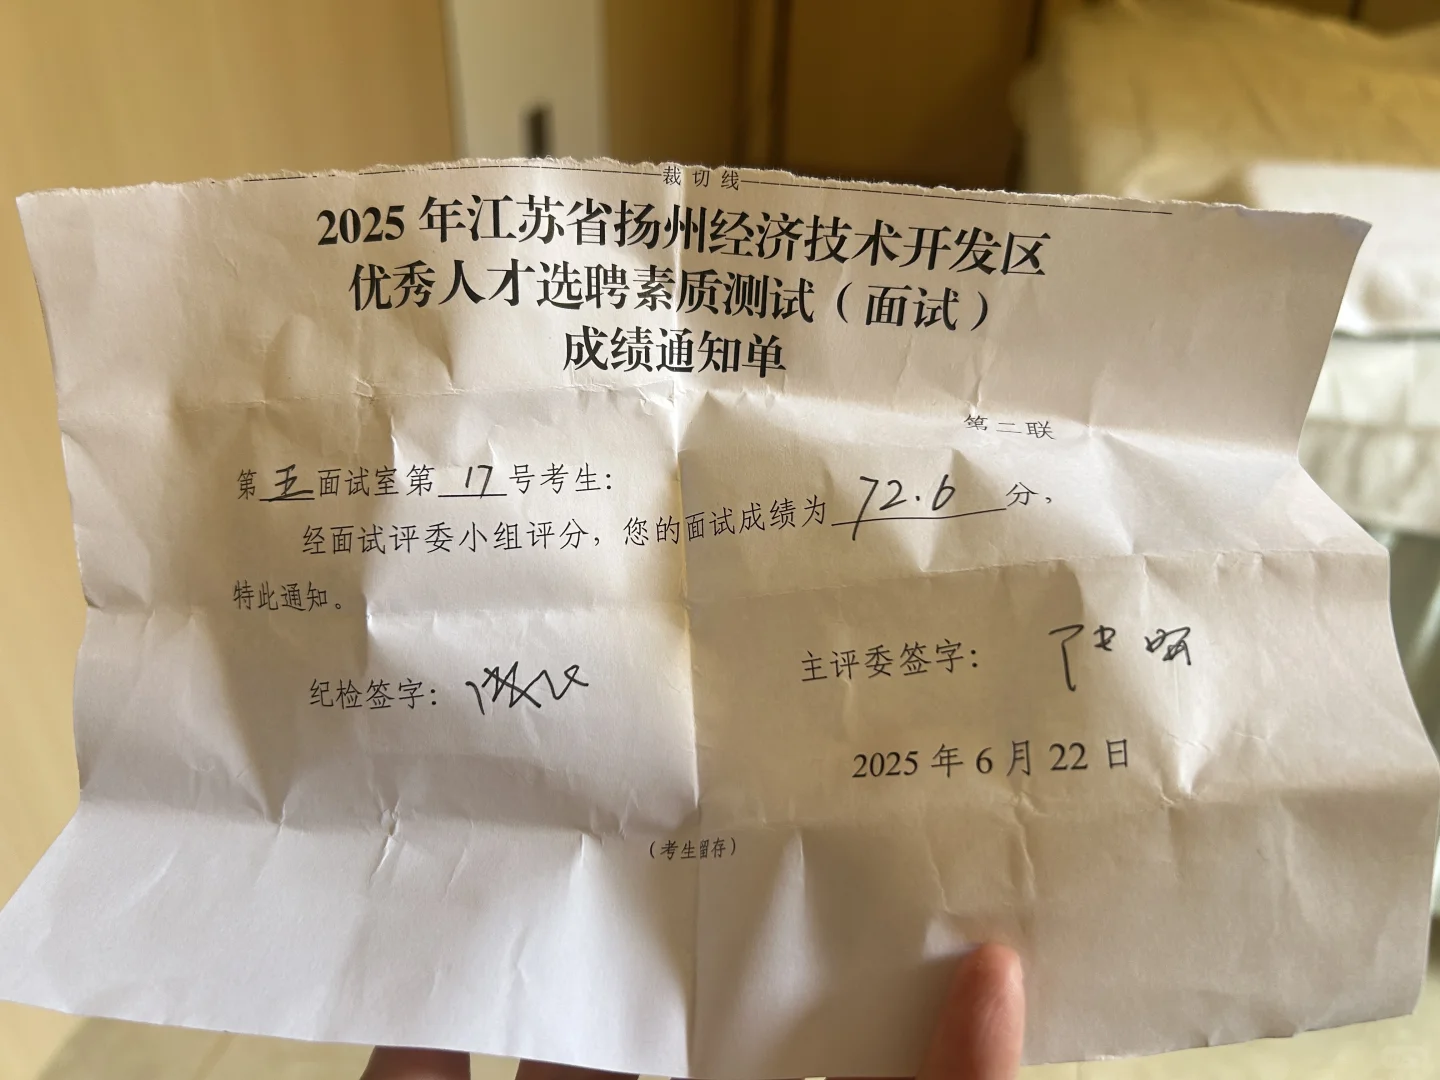 裁切线
2025年江苏省扬州经济技术开发区
优秀人才选聘素质测试（面试）
成绩通知单
第二联
第五面试室第17号考生：
经面试评委小组评分，您的面试成绩为72.6分，
特此通知。
纪检签字：
主评委签字：
2025年6月22日
（考生留存）